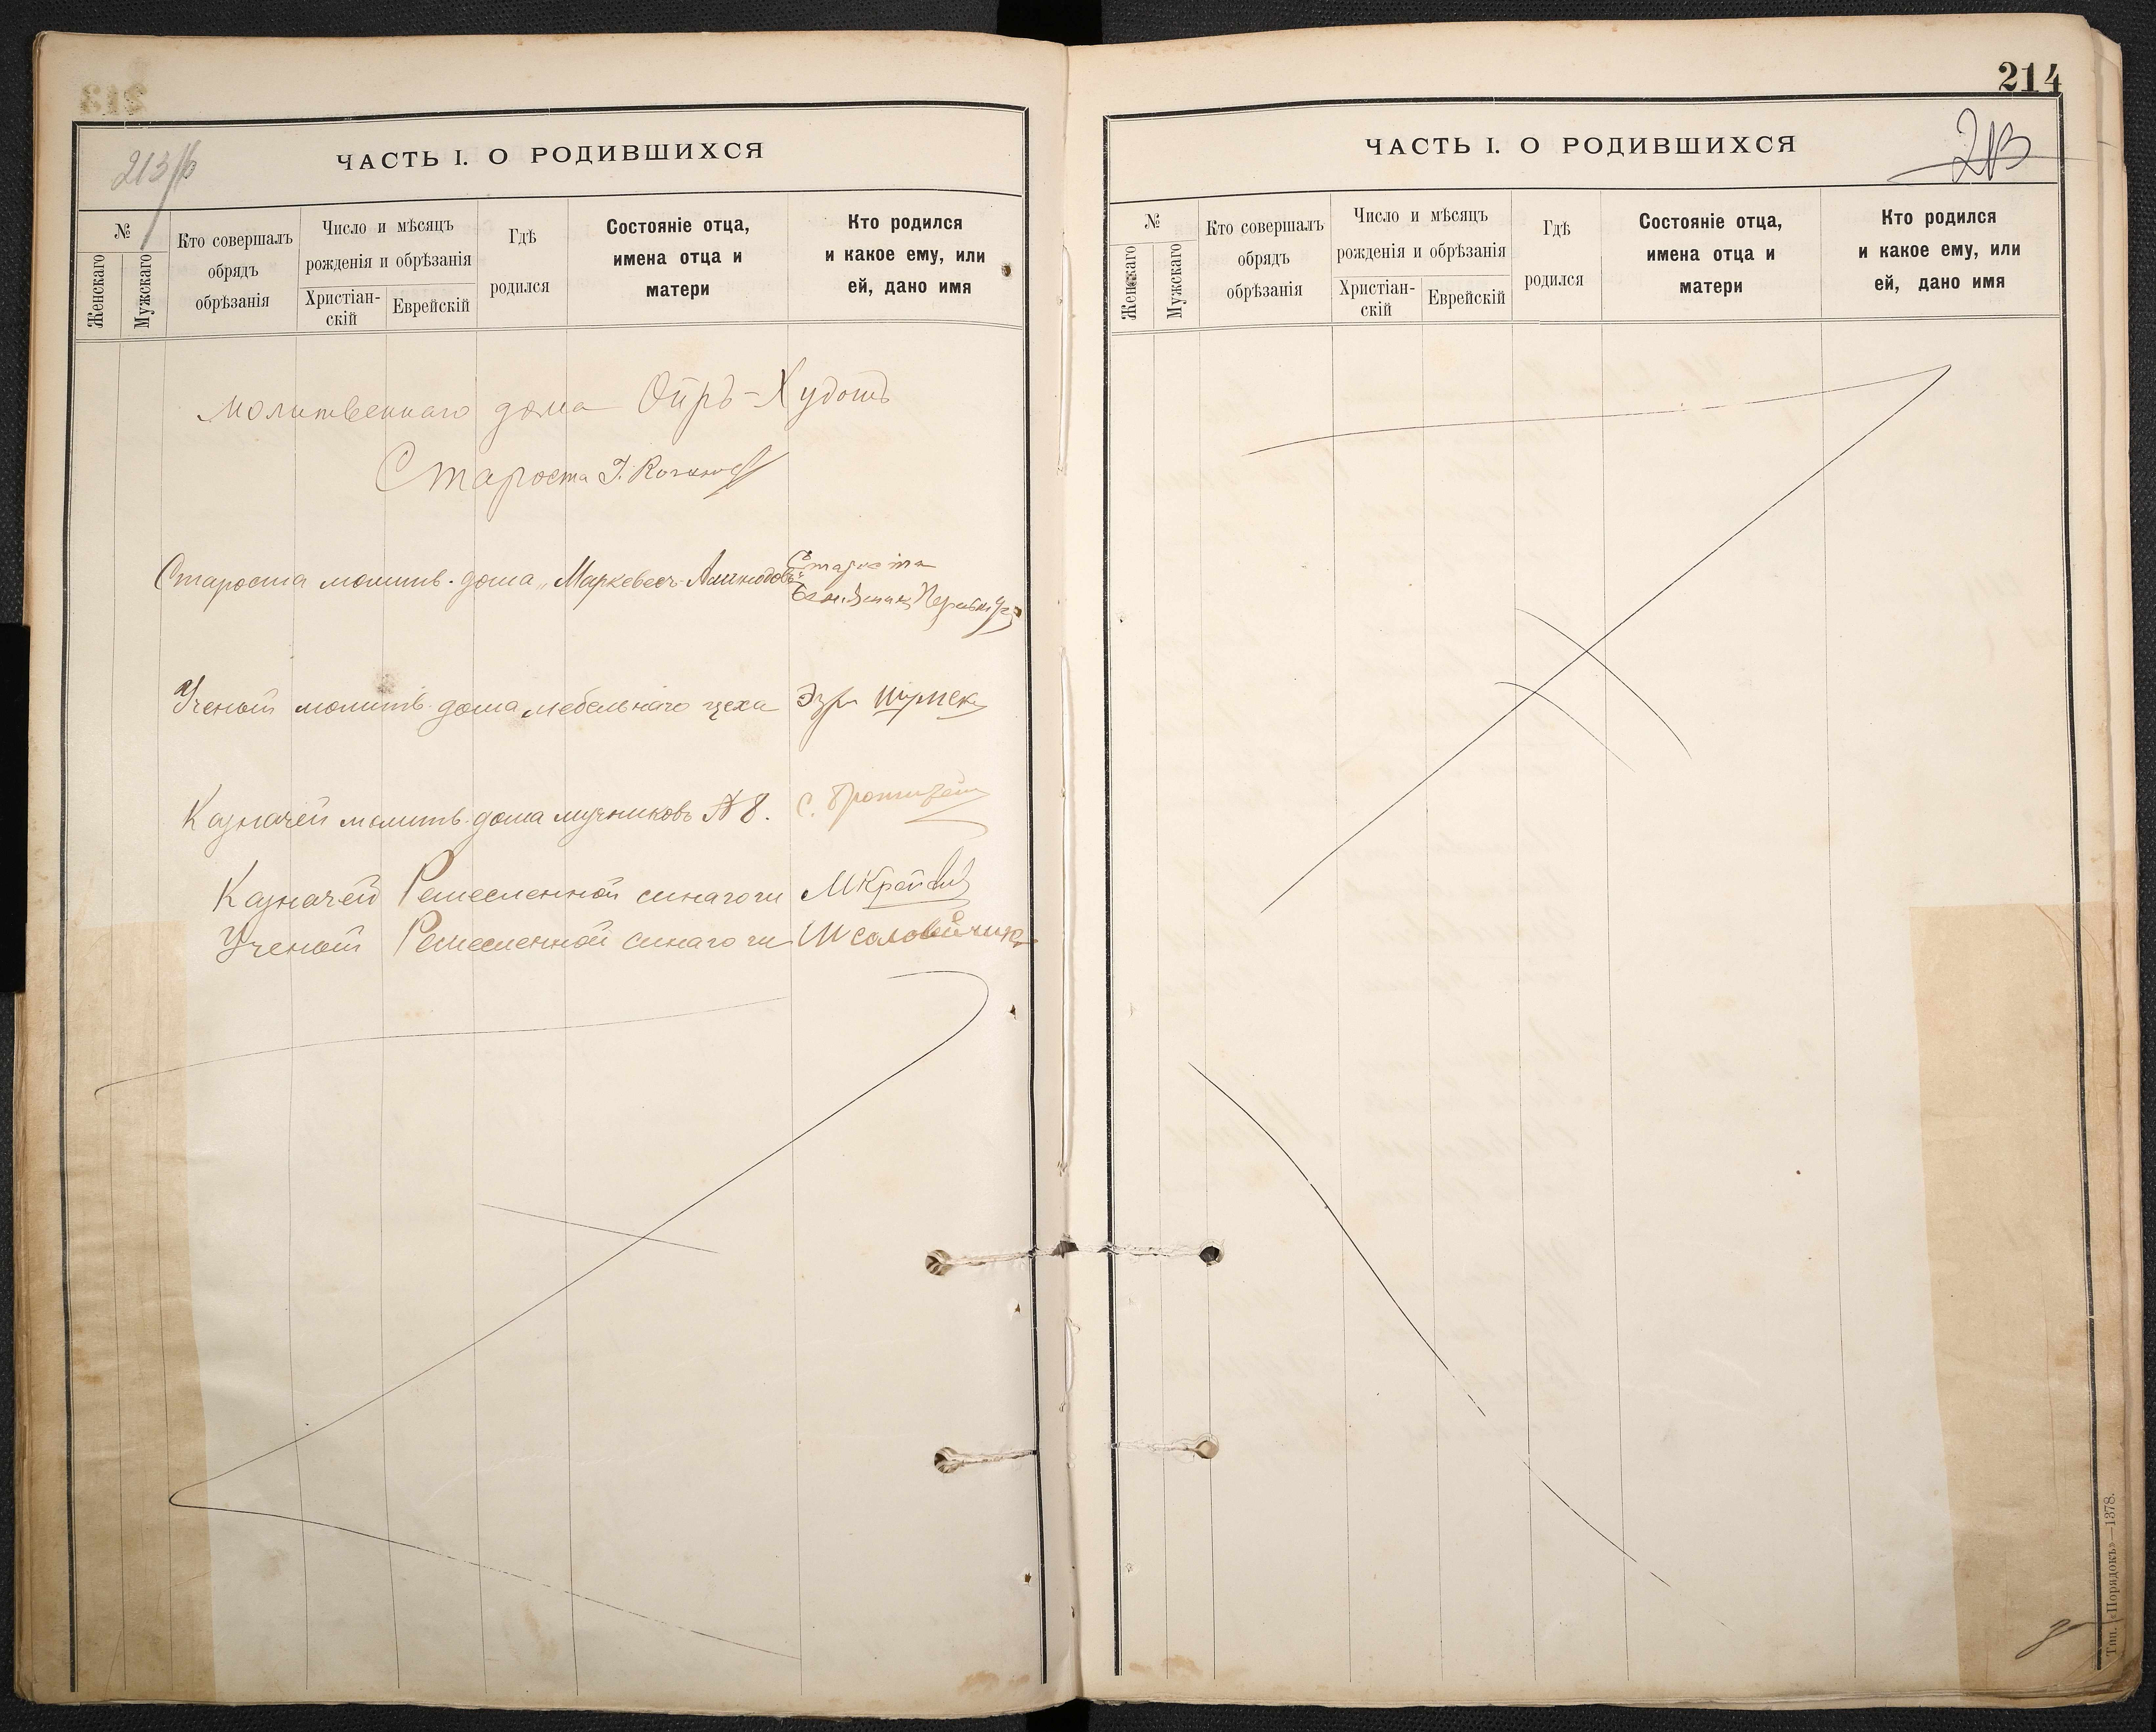 213
213/б
ЧАСТЬ I. О РОДИВШИХСЯ
№
Женскаго
Мужскаго
Кто совершалъ
обрядъ
обрѣзанія
Число и мѣсяцъ
рожденія и обрѣзанія
Христіан-
скій
Еврейскій
Гдѣ
родился
Состояніе отца,
имена отца и
матери
Кто родился
и какое ему, или
ей, дано имя
молитвеннаго дома Ойръ-Худошъ
Староста
Староста молитв. дома
Староста
Ученый молитв. дома мебельнаго цеха
Казначей молитв. дома мучниковъ № 8.
Казначей Ремесленной синагоги
Ученый Ремесленной синагоги Ш Соловейчикъ
214
213
ЧАСТЬ I. О РОДИВШИХСЯ
№
Женскаго
Мужскаго
Кто совершалъ
обрядъ
обрѣзанія
Число и мѣсяцъ
рожденія и обрѣзанія
Христіан-
скій
Еврейскій
Гдѣ
родился
Состояніе отца,
имена отца и
матери
Кто родился
и какое ему, или
ей, дано имя
Тип. «Порядокъ»—1378.